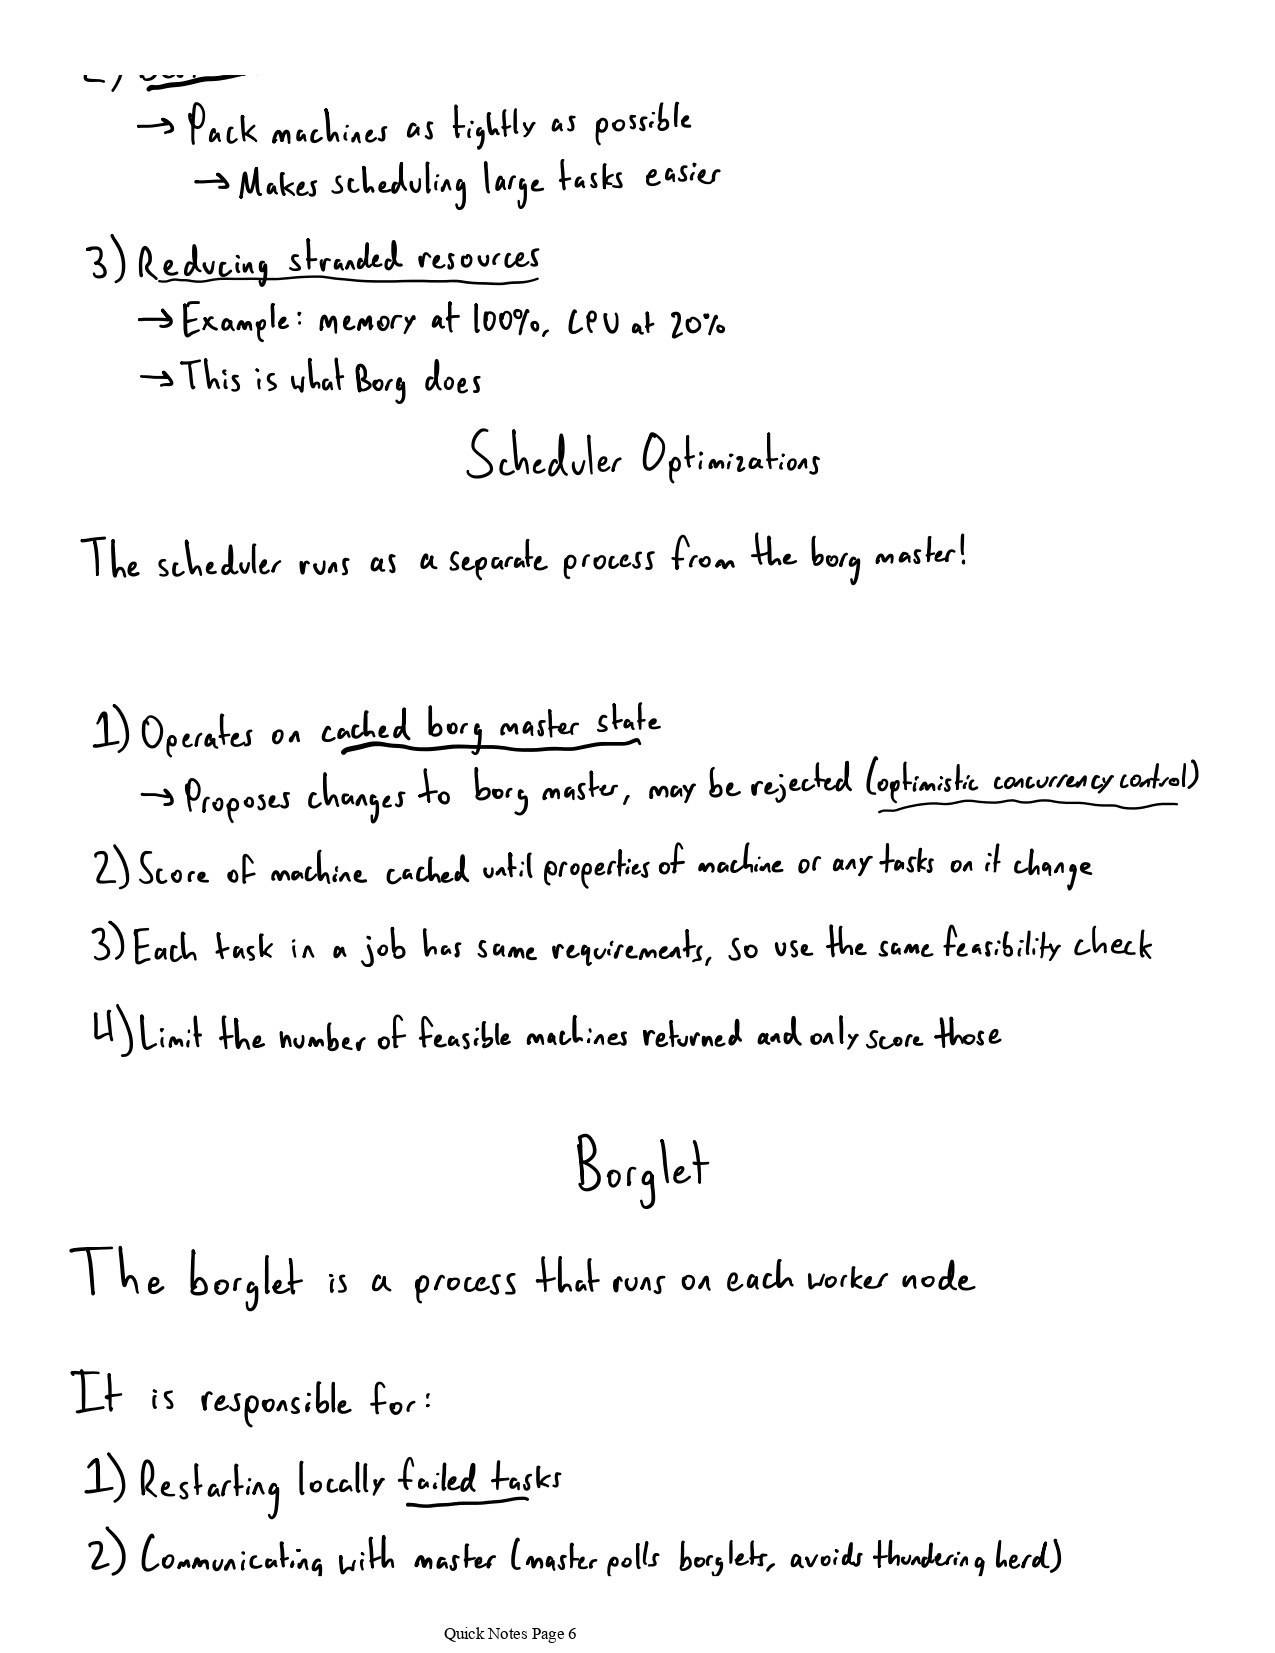 2)
→ Pack machines as tightly as possible
→ Makes scheduling large tasks easier
3) Reducing stranded resources
→ Example: memory at 100%, CPU at 20%
→ This is what Borg does
Scheduler Optimizations
The scheduler runs as a separate process from the borg master!
1) Operates on cached borg master state
→ Proposes changes to borg master, may be rejected (optimistic concurrency control)
2) Score of machine cached until properties of machine or any tasks on it change
3) Each task in a job has same requirements, so use the same feasibility check
4) Limit the number of feasible machines returned and only score those
Borglet
The borglet is a process that runs on each worker node
It is responsible for:
1) Restarting locally failed tasks
2) Communicating with master (master polls borglets, avoids thundering herd)
Quick Notes Page 6